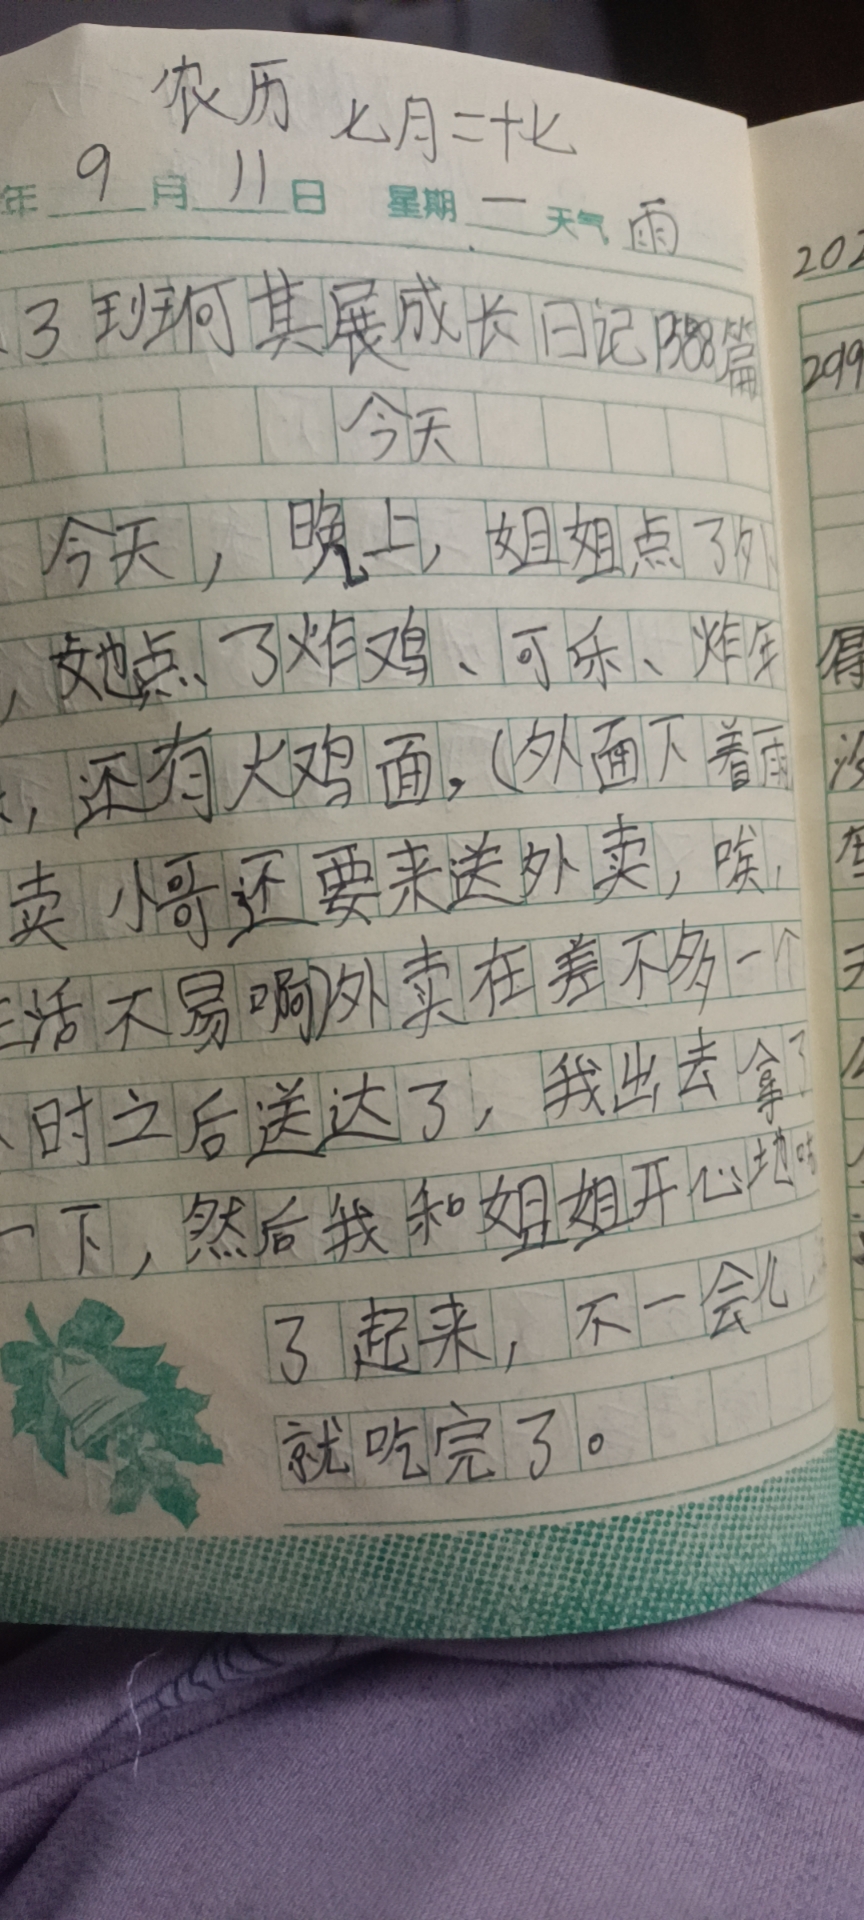 农历 七月二十七
年 9 月 11 日 星期 一 天气 雨
3 班何其展成长日记1388篇
今天
今天，晚上，姐姐点了外
，她点了炸鸡、可乐、炸年
，还有火鸡面。（外面下着雨
卖小哥还要来送外卖，唉，
生活不易啊）外卖在差不多一个
时之后送达了，我出去拿了
一下，然后我和姐姐开心地吃
了起来，不一会儿，
就吃完了。
202
299
得
没